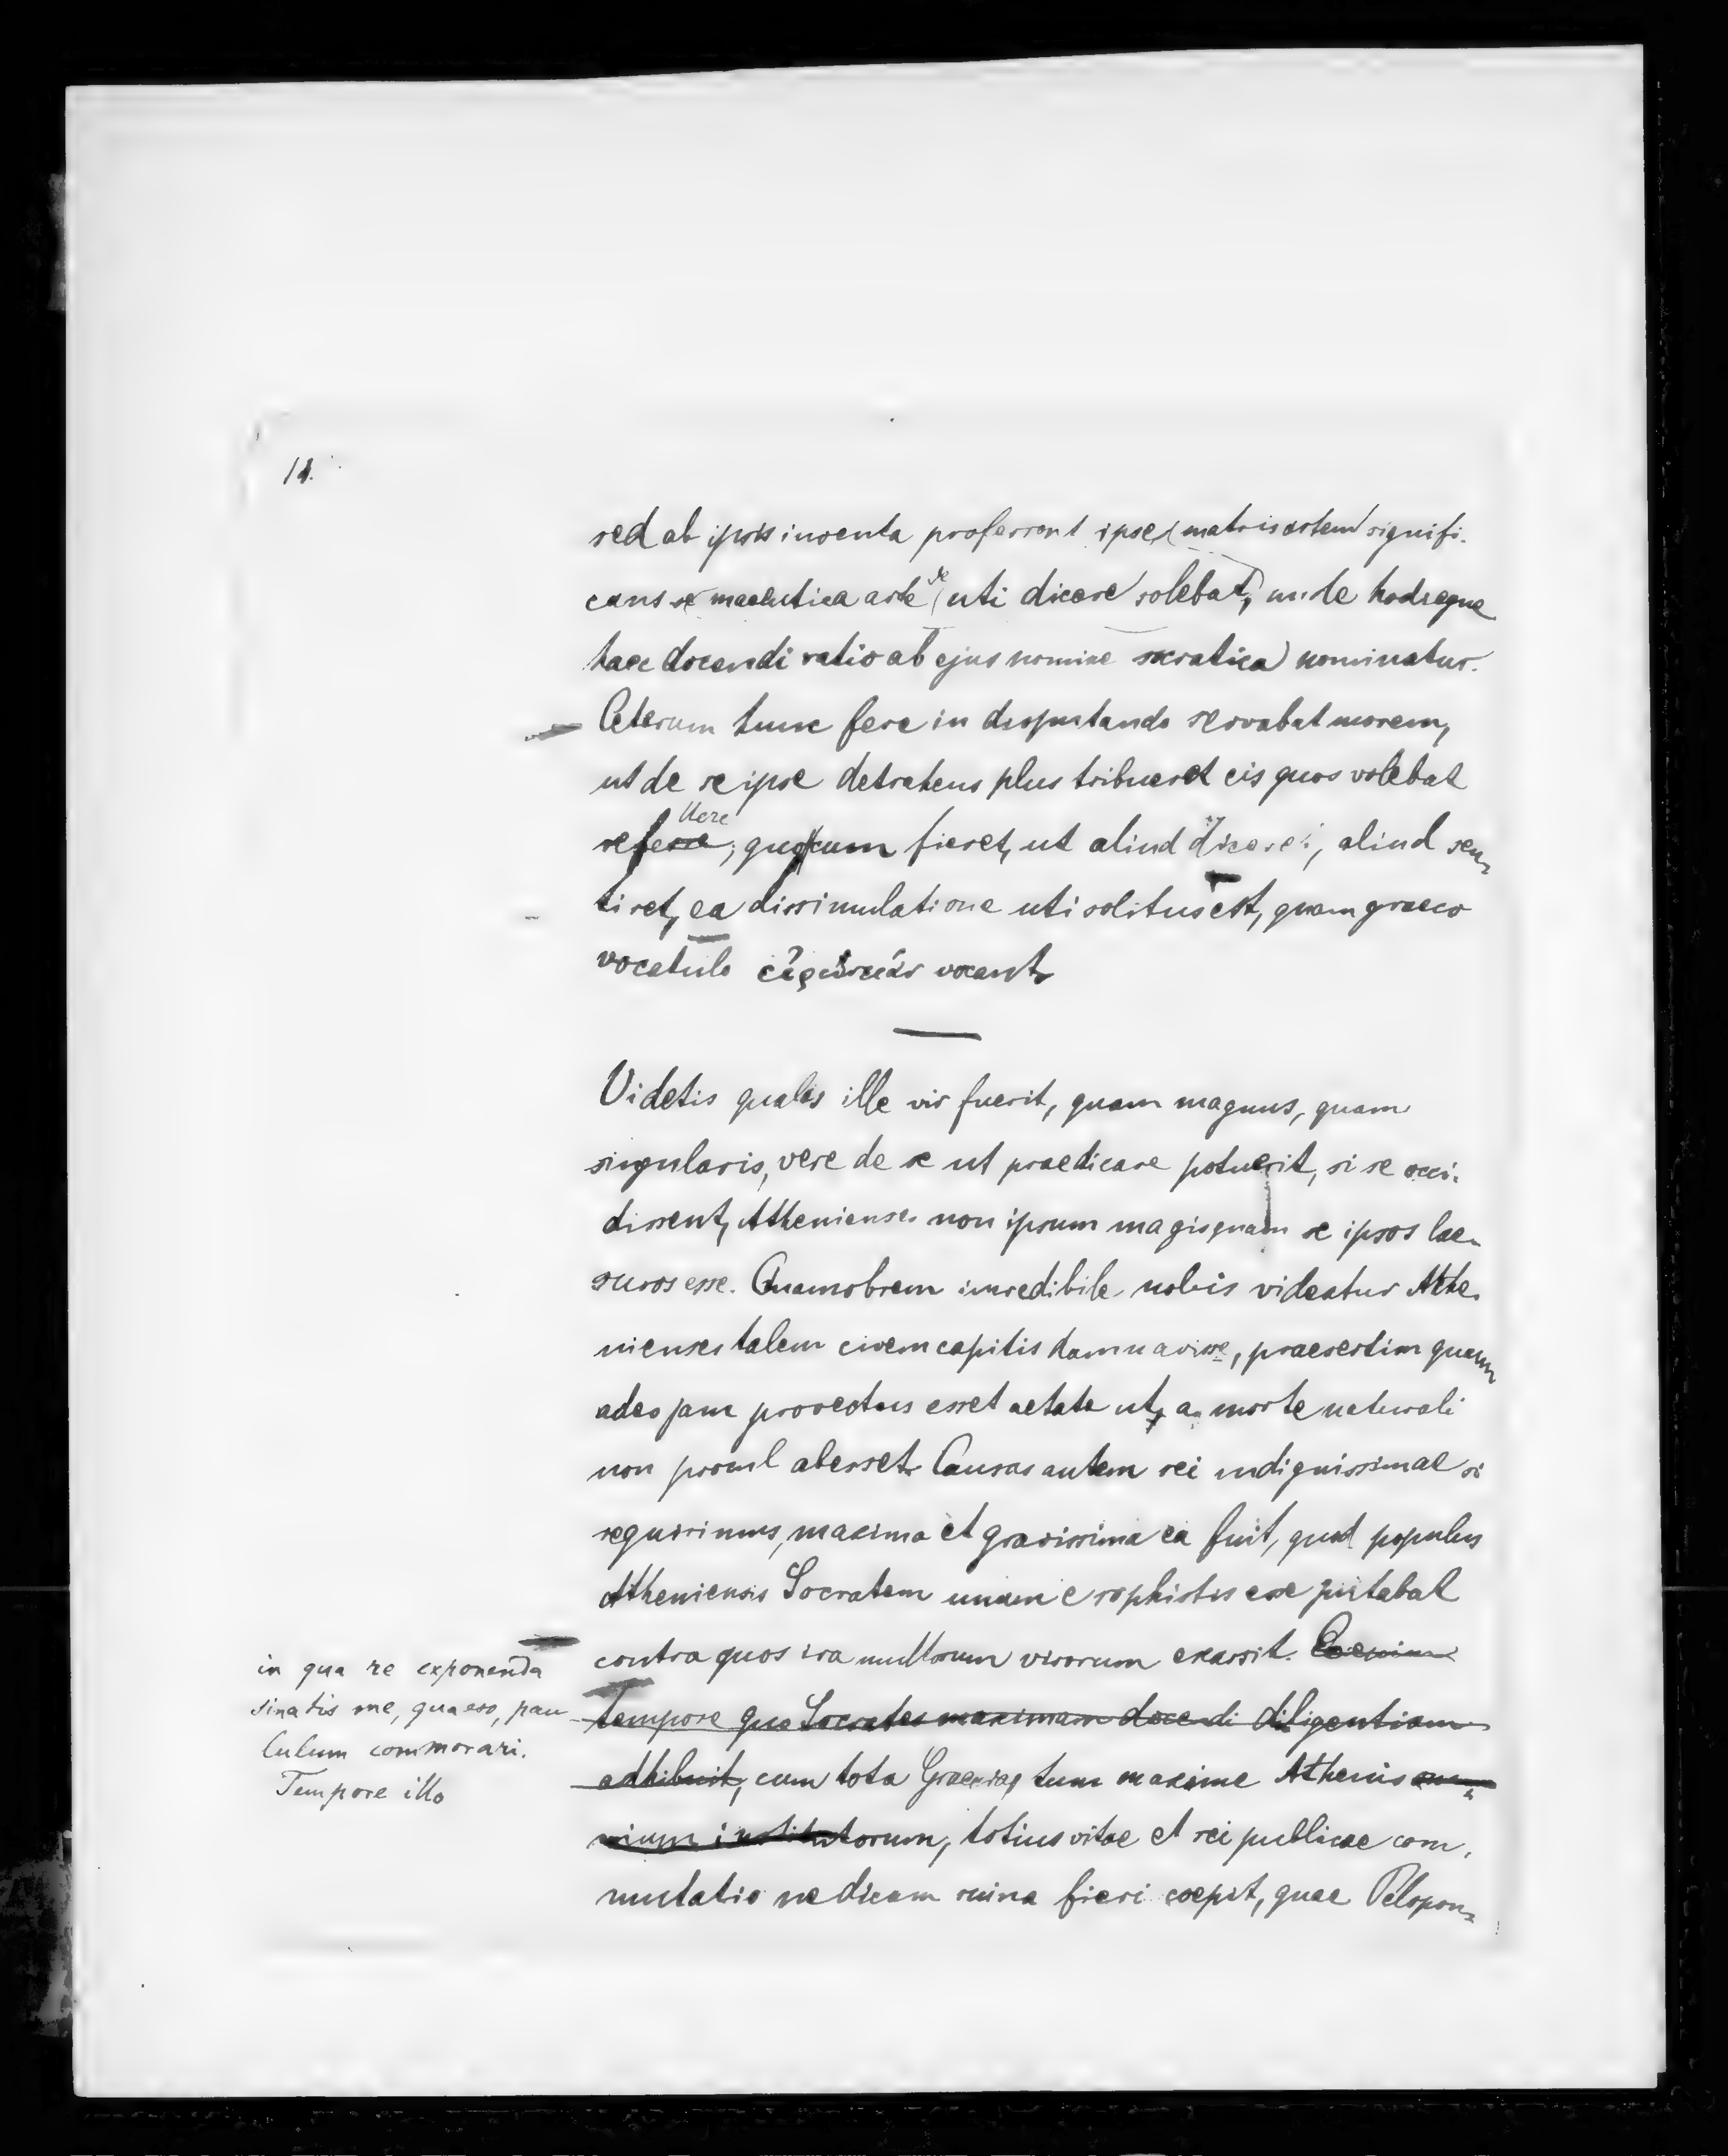 sed ab ipsis inventa proferrent ipse (matris artem signifi-
cans se maeeutica arte se (uti dicere solebat), unde hodieque
haec docendi ratio ab ejus nomine socratica) nominatur.
Ceterum hunc fere in disputando servabat morem,
ut de se ipse detrahens plus tribueret eis quos volebat
refellere; quocum fieret, ut aliud diceret, aliud sen-
tiret, ea dissimulatione uti solitus est, quam graeco
vocabulo εἰρωνείαν vocant.
Videtis qualis ille vir fuerit, quam magnus, quam
singularis, vere de se ut praedicare potuerit, si se occi-
dissent, Athenienses non ipsum magis quam se ipsos lae-
suros esse. Quamobrem incredibile nobis videatur Athe-
nienses talem civem capitis damnavisse, praesertim quum
adeo jam provectus esset aetate ut a morte naturali
non procul abesset. Causas autem rei indignissimae si
requirimus, maxima et gravissima ea fuit, quod populus
Atheniensis Socratem unum e sophistis esse putabat
contra quos ira multorum virorum exarsit. Eo enim
tempore quo Socrates maximam docendi diligentiam
adhibuit, cum tota Graecia, tum maxime Athenis om-
nium institutorum, totius vitae et rei publicae com-
mutatio ne dicam ruina fieri coepit, quae Pelopon-
in qua re exponenda
sinatis me, quaeso, pau-
lulum commorari.
Tempore illo